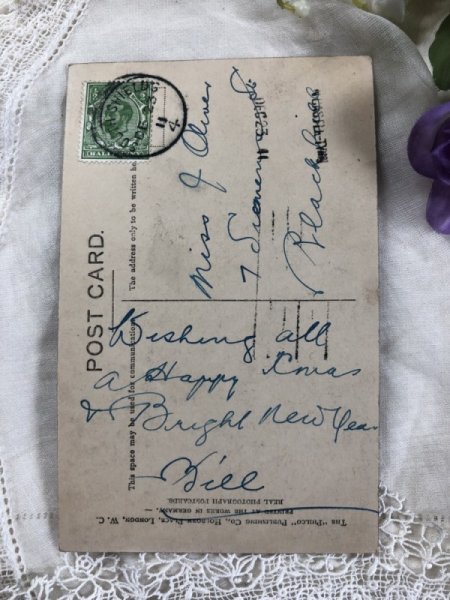 POST CARD.
This space may be used for communication
The address only to be written here
HALF
Miss J Oliver
7
Wishing all
a Happy Xmas
& Bright New Year
Bill
THE "PHILCO" PUBLISHING CO., HOLBORN PLACE, LONDON, W. C.
PRINTED AT THE WORKS IN GERMANY.
REAL PHOTOGRAPH POSTCARDS.